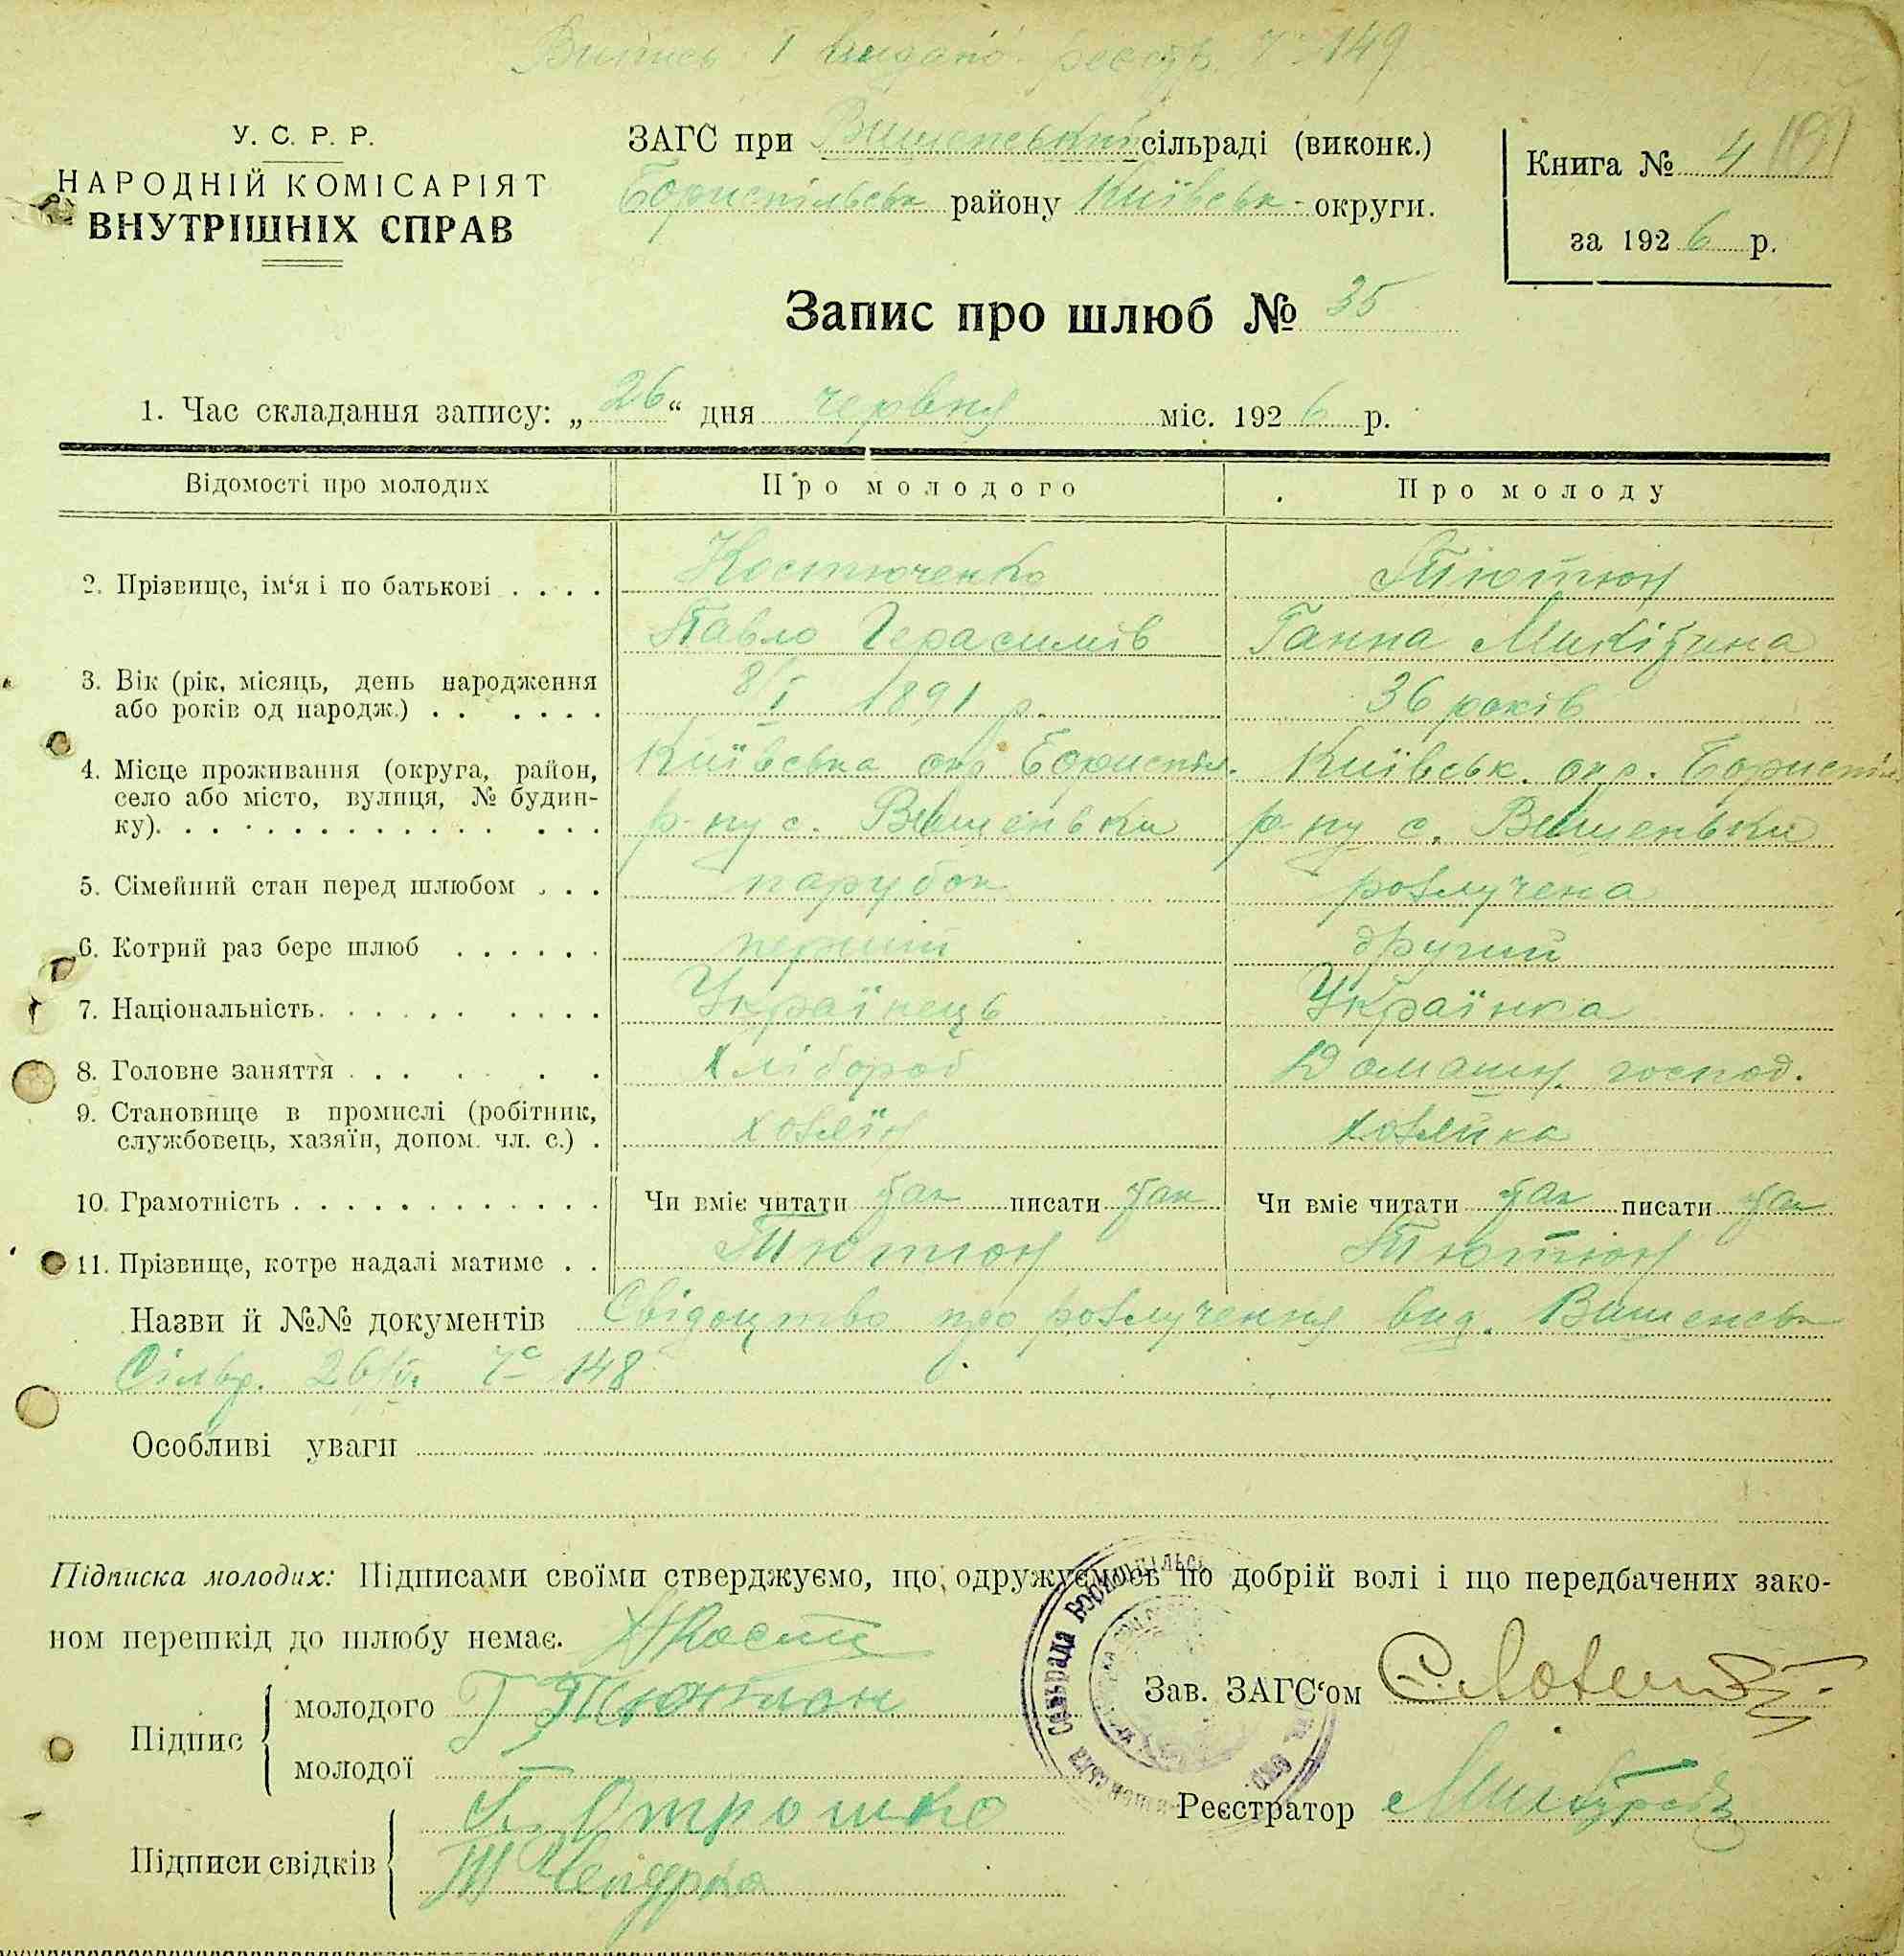 Витись I видано реєстр. № 149
У. С. Р. Р.
НАРОДНІЙ КОМІСАРІЯТ
ВНУТРІШНІХ СПРАВ
ЗАГС при сільраді (виконк.)
Бориспільськ району Київськ - округи.
Книга № 4
за 1926 р.
Запис про шлюб № 35
1. Час складання запису: „26“ дня червня міс. 1926 р.
Відомості про молодих
Про молодого
Про молоду
2. Прізвище, ім‘я і по батькові . . . .
Костюченко
Павло Герасимів
Тютюн
Ганна
3. Вік (рік, місяць, день народження
або років од народж.) . . . . . .
8/I 1891 р.
36 років
4. Місце проживання (округа, район,
село або місто, вулиця, № будин-
ку). . . . . . . . . . . . . . .
Київська окр. Бориспіл.
р-ну с. Вишеньки
Київськ. окр. Бориспіл
р-ну с. Вишеньки
5. Сімейний стан перед шлюбом . . .
парубок
розлучена
6. Котрий раз бере шлюб . . . . . .
перший
другий
7. Національність. . . . . . . . . .
Українець
Українка
8. Головне заняття . . . . . .
Хлібороб
Домашн. господ.
9. Становище в промислі (робітник,
службовець, хазяїн, допом. чл. с.) .
хозяїн
хозяйка
10. Грамотність . . . . . . . . . . . .
Чи вміє читати так писати так
Чи вміє читати так писати так
11. Прізвище, котре надалі матиме . .
Тютюн
Тютюн
Назви й №№ документів Свідоцтво про розлучення вид. Вишенськ
Сільр. № 148
Особливі уваги
Підписка молодих: Підписами своїми стверджуємо, що одружуємось по добрій волі і що передбачених зако-
ном перешкід до шлюбу немає.
Підпис
молодого
Г Тютюн
молодої
Підписи свідків
Отрошко
Чепурка
Зав. ЗАГС‘ом
Реєстратор